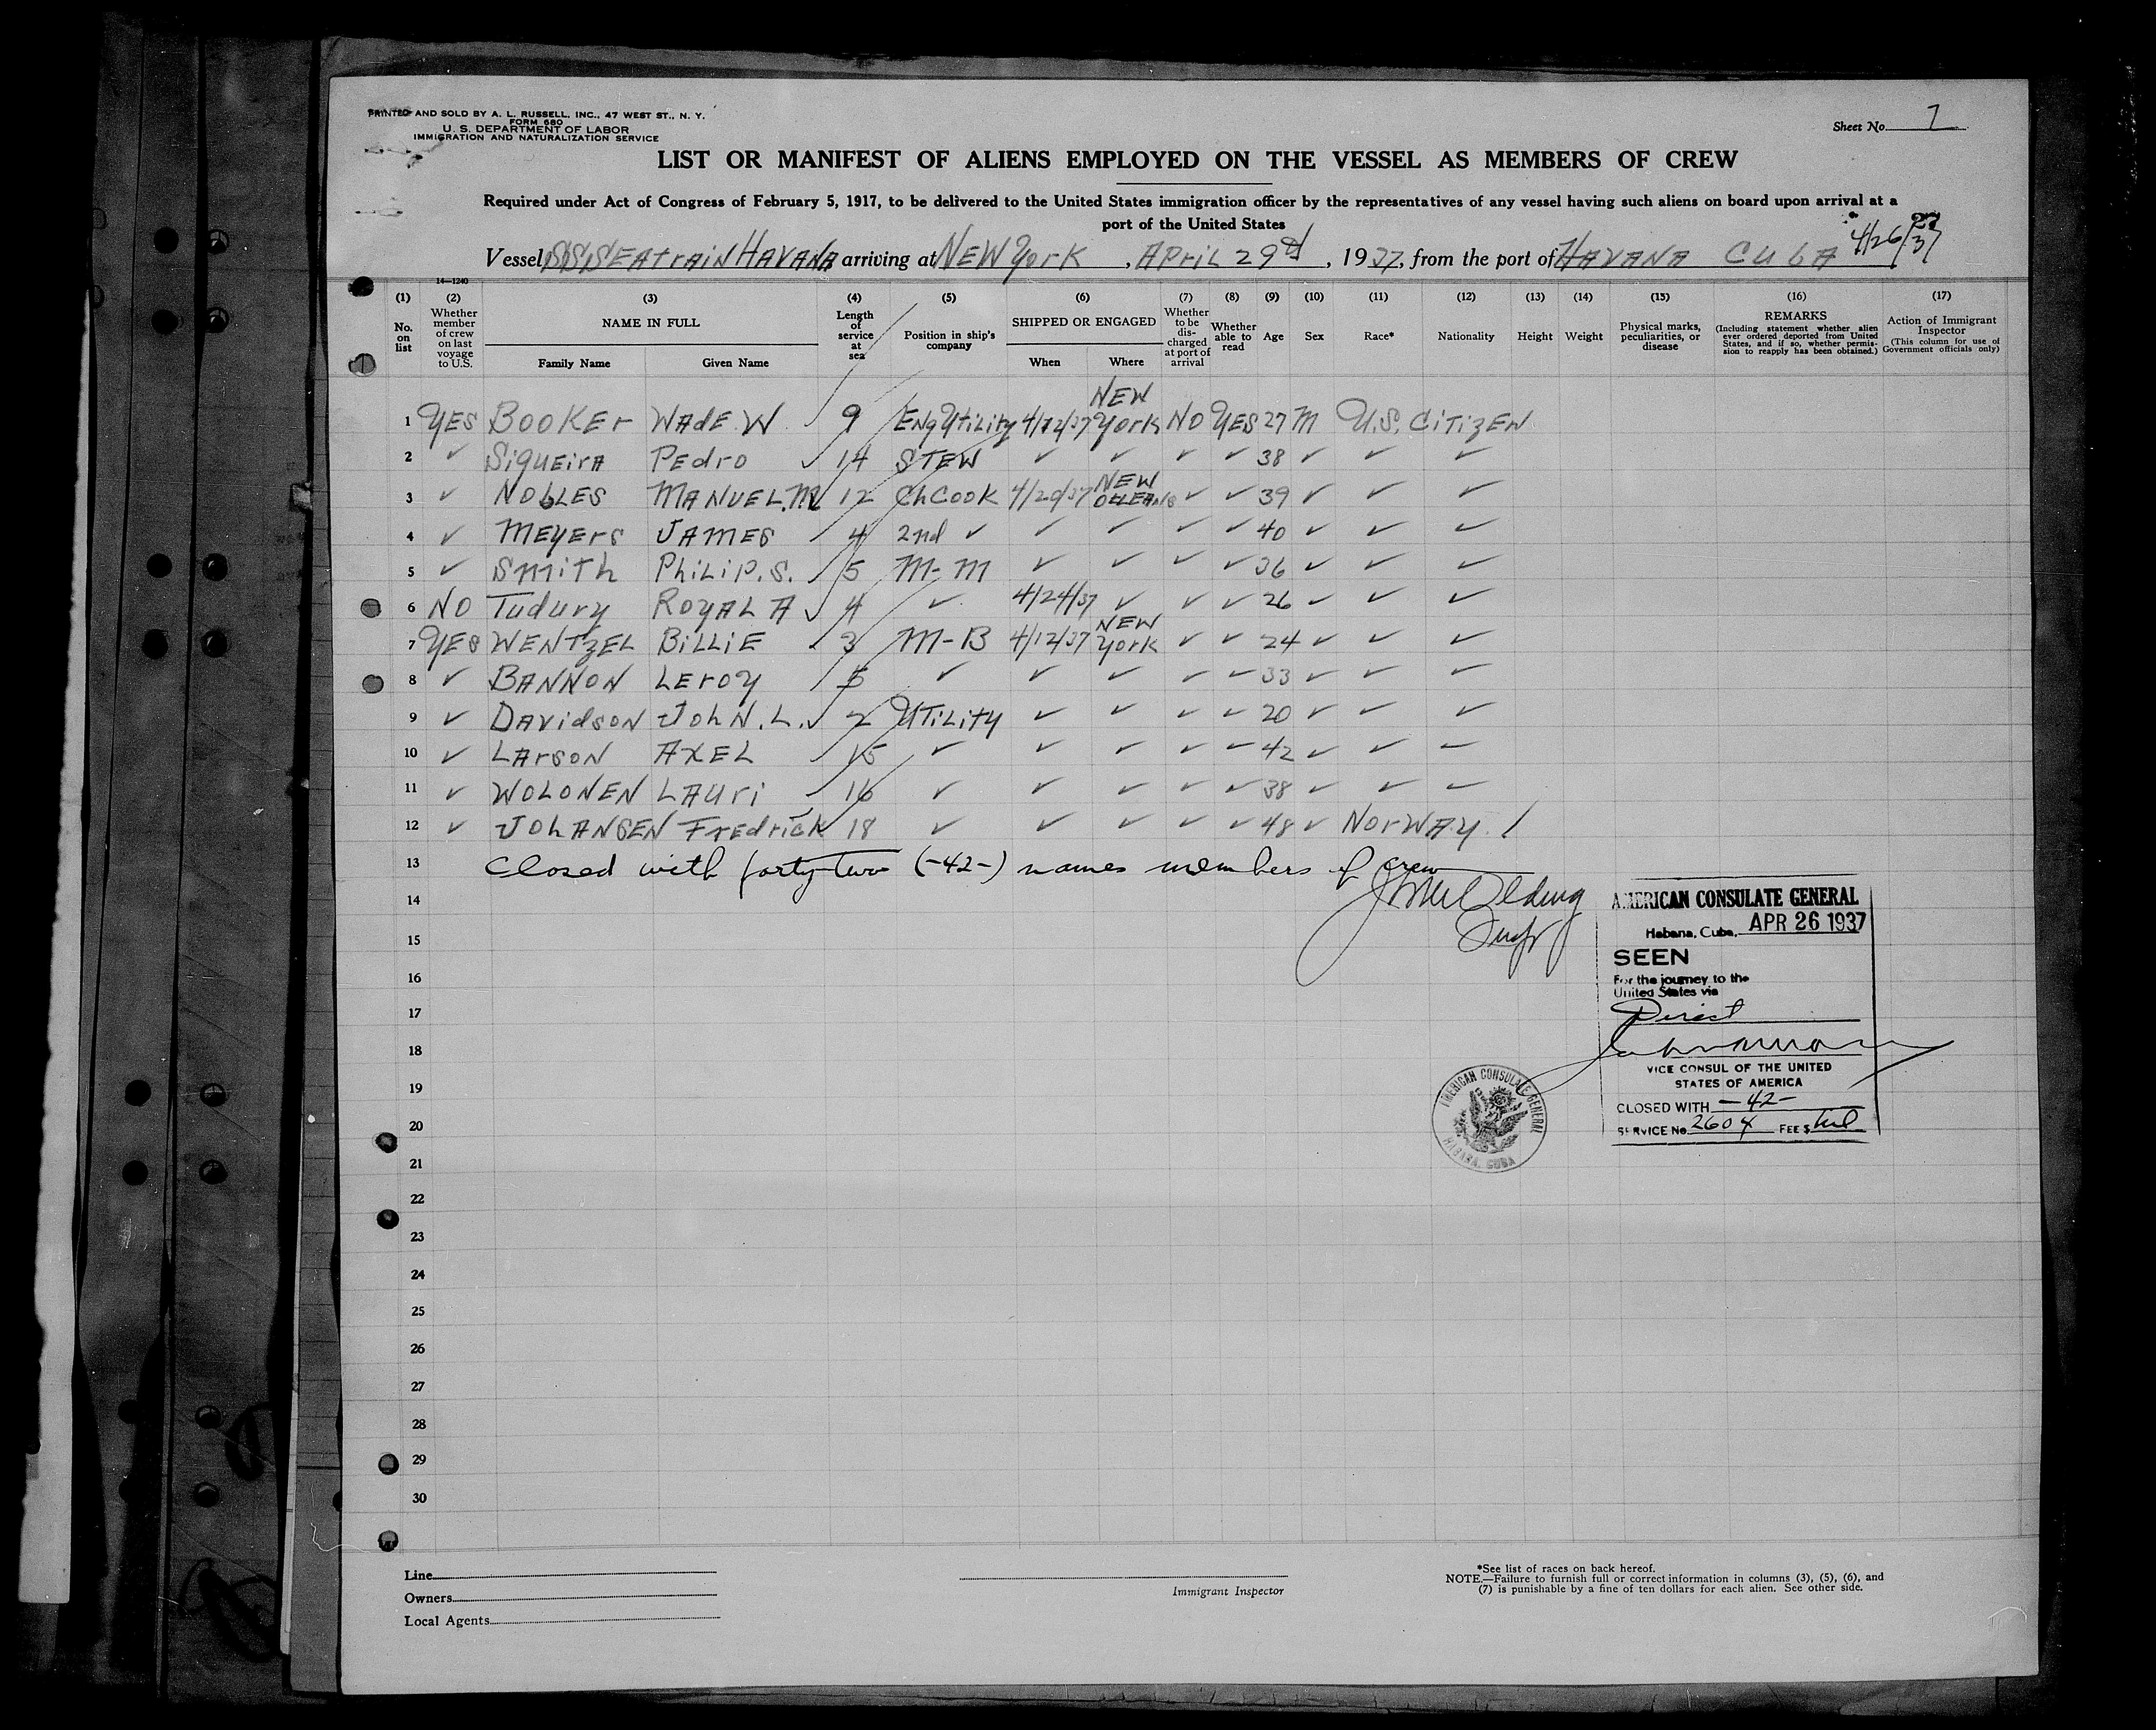 PRINTED AND SOLD BY A. L. RUSSELL, INC., 47 WEST ST., N. Y.
FORM 680
U. S. DEPARTMENT OF LABOR
IMMIGRATION AND NATURALIZATION SERVICE
Sheet No. 7
LIST OR MANIFEST OF ALIENS EMPLOYED ON THE VESSEL AS MEMBERS OF CREW
Required under Act of Congress of February 5, 1917, to be delivered to the United States immigration officer by the representatives of any vessel having such aliens on board upon arrival at a
port of the United States
Vessel SS SEATRAIN HAVANA arriving at NEW York, APRIL 29th, 1937, from the port of HAVANA CUBA 4/26/37
14—1240
(1) (2) (3) (4) (5) (6) (7) (8) (9) (10) (11) (12) (13) (14) (15) (16) (17)
No. on list
Whether member of crew on last voyage to U.S.
NAME IN FULL
Family Name Given Name
Length of service at sea
Position in ship's company
SHIPPED OR ENGAGED
When Where
Whether to be discharged at port of arrival
Whether able to read
Age Sex Race* Nationality Height Weight
Physical marks, peculiarities, or disease
REMARKS
(Including statement whether alien ever ordered deported from United States, and if so, whether permission to reapply has been obtained.)
Action of Immigrant Inspector
(This column for use of Government officials only)
1 YES BOOKER WADE W ✓ 9 Eng Utility 4/12/37 NEW York NO YES 27 M U.S. CITIZEN
2 ✓ SIQUEIRA PEDRO ✓ 14 STEW ✓ ✓ ✓ ✓ 38 ✓ ✓ ✓
3 ✓ NOBLES MANUEL.M ✓ 12 Ch COOK 4/20/37 NEW ORLEANS ✓ ✓ 39 ✓ ✓ ✓
4 ✓ MEYERS JAMES ✓ 4 2nd ✓ ✓ ✓ ✓ ✓ 40 ✓ ✓ ✓
5 ✓ SMITH PHILIP.S. ✓ 5 M-M ✓ ✓ ✓ ✓ 36 ✓ ✓ ✓
6 NO Tudury ROYAL A ✓ 4 ✓ 4/24/37 ✓ ✓ ✓ 26 ✓ ✓ ✓
7 YES WENTZEL BILLIE ✓ 3 M-B 4/12/37 NEW York ✓ ✓ 24 ✓ ✓ ✓
8 ✓ BANNON LEROY ✓ 5 ✓ ✓ ✓ ✓ ✓ 33 ✓ ✓ ✓
9 ✓ DAVIDSON JOHN.L. ✓ 2 UTILITY ✓ ✓ ✓ ✓ 20 ✓ ✓ ✓
10 ✓ LARSON AXEL ✓ 15 ✓ ✓ ✓ ✓ ✓ 42 ✓ ✓ ✓
11 ✓ WOLONEN LAURI ✓ 16 ✓ ✓ ✓ ✓ ✓ 38 ✓ ✓ ✓
12 ✓ JOHANSEN Fredrick ✓ 18 ✓ ✓ ✓ ✓ ✓ 48 ✓ NORWAY. /
13 Closed with forty-two (-42-) names members of crew
14
15
16
17
18
19
20
21
22
23
24
25
26
27
28
29
30
AMERICAN CONSULATE GENERAL
Habana, Cuba, APR 26 1937
SEEN
For the journey to the
United States via
Direct
VICE CONSUL OF THE UNITED
STATES OF AMERICA
CLOSED WITH -42-
SERVICE No. 2604 FEE $ nil
AMERICAN CONSULATE GENERAL
HABANA, CUBA
Line
Owners
Local Agents
Immigrant Inspector
*See list of races on back hereof.
NOTE.—Failure to furnish full or correct information in columns (3), (5), (6), and
(7) is punishable by a fine of ten dollars for each alien. See other side.